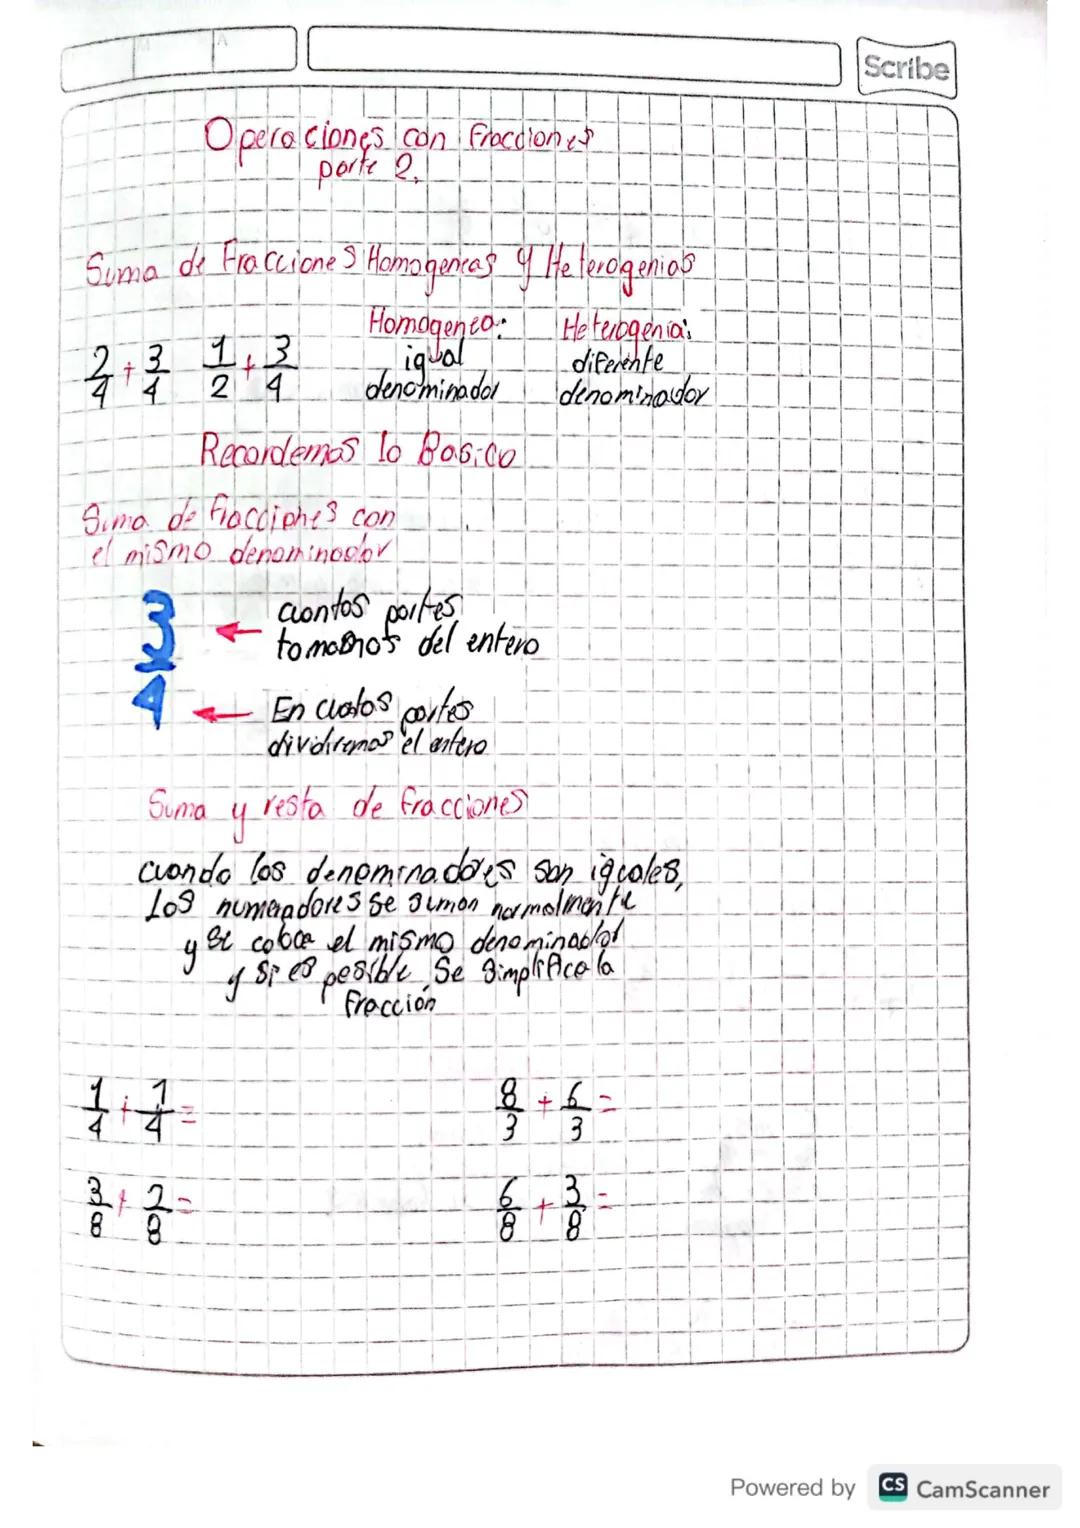 M A
Scribe
Operaciones con fracciones
parte 2.
Suma de Fracciones Homogeneas y Heterogenias
Homogenea: Heterogenia:
2/4 + 3/4 1/2 + 3/4
igual diferente
denominador denominador
Recordemos lo Basico
Suma de fracciones con
el mismo denominador
3/4
cuantos partes
tomamos del entero
En cuatos partes
dividiremos el entero
Suma y resta de fracciones
cuando los denominadores son iguales,
Los numeradores se suman normalmente
y se coloca el mismo denominador
y si es posible se simplifica la
fracción
1/4 + 1/4 = 8/3 + 6/3 =
3/8 + 2/8 = 6/8 + 3/8 =
Powered by CS CamScanner